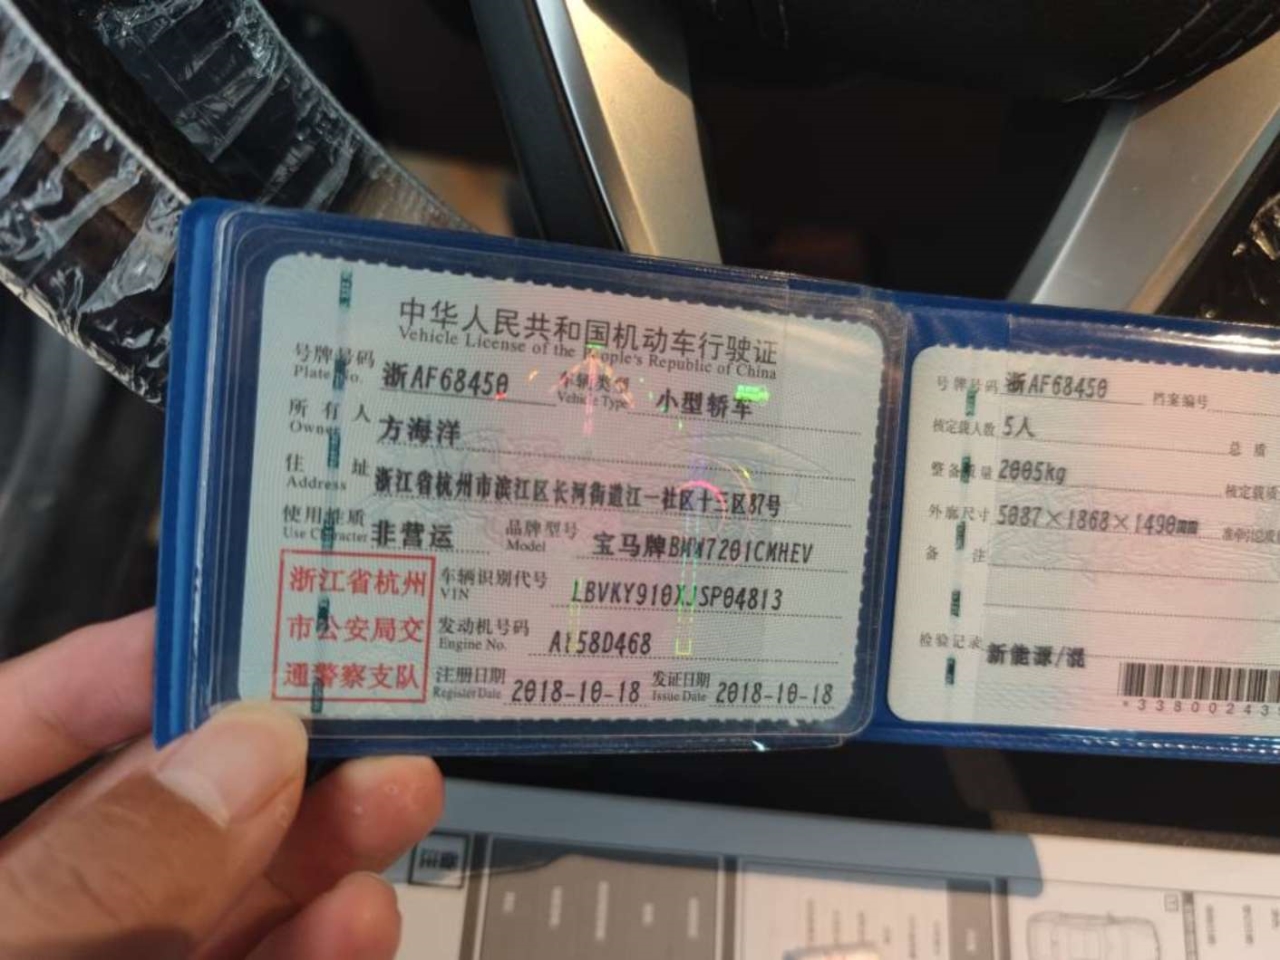 中华人民共和国机动车行驶证
Vehicle License of the People's Republic of China
号牌号码 浙AF68450 车辆类型 小型轿车
Plate No. Vehicle Type
所有人 方海洋
Owner
住址 浙江省杭州市滨江区长河街道江一社区十三区87号
Address
使用性质 非营运 品牌型号 宝马牌BMW7201CMHEV
Use Character Model
浙江省杭州
市公安局交
通警察支队
车辆识别代号 LBVKY910XJSP04813
VIN
发动机号码 A158D468
Engine No.
注册日期 2018-10-18 发证日期 2018-10-18
Register Date Issue Date
号牌号码 浙AF68450 档案编号
核定载人数 5人 总质
整备质量 2005kg 核定载质
外廓尺寸 5087×1868×1490mm 准牵引总质
备注
检验记录 新能源/混
*33800243